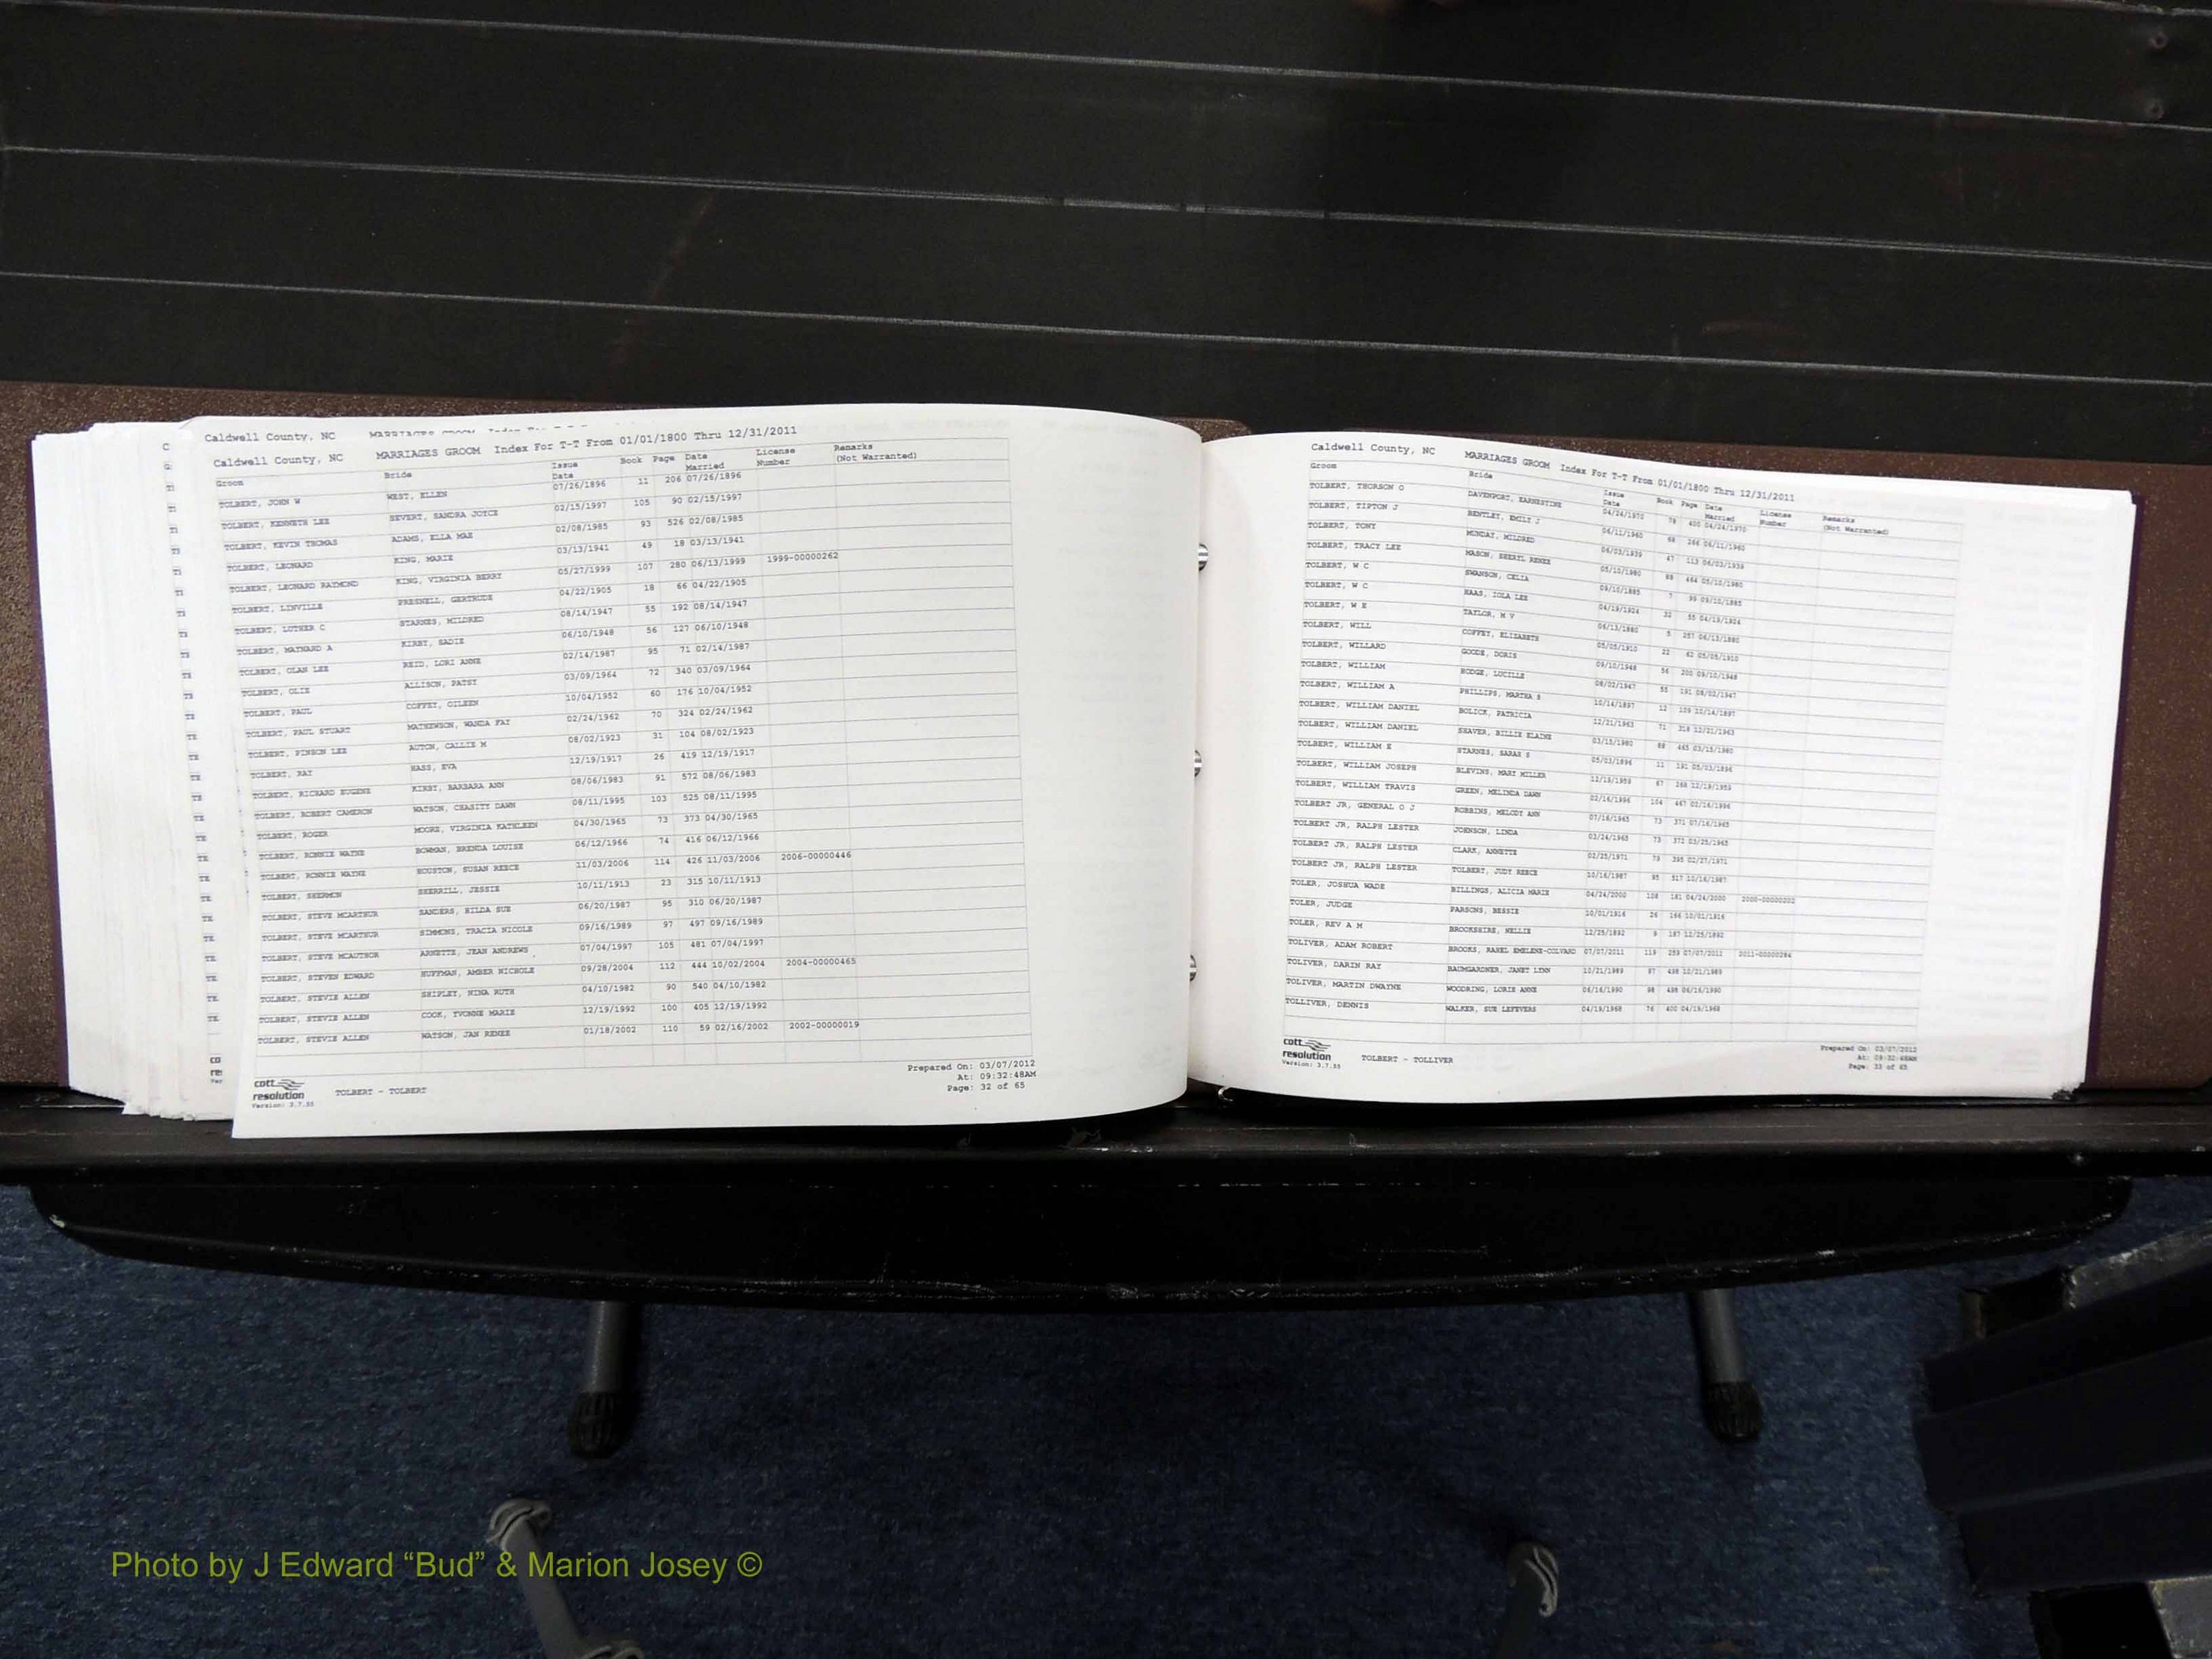 Caldwell County, NC MARRIAGES GROOM Index For T-T From 01/01/1800 Thru 12/31/2011
Caldwell County, NC MARRIAGES GROOM Index For T-T From 01/01/1800 Thru 12/31/2011
Groom Bride Issue Date Book Page Date Married License Number Remarks (Not Warranted)
TOLBERT, JOHN W WEST, ELLEN 07/26/1896 11 206 07/26/1896
TOLBERT, KENNETH LEE SEVERT, SANDRA JOYCE 02/15/1997 105 90 02/15/1997
TOLBERT, KEVIN THOMAS ADAMS, ELLA MAE 02/08/1985 93 526 02/08/1985
TOLBERT, LEONARD KING, MARIE 03/13/1941 49 18 03/13/1941
TOLBERT, LEONARD RAYMOND KING, VIRGINIA BERRY 05/27/1999 107 280 06/13/1999 1999-00000262
TOLBERT, LINVILLE PRESNELL, GERTRUDE 04/22/1905 18 66 04/22/1905
TOLBERT, LUTHER C STARNES, MILDRED 08/14/1947 55 192 08/14/1947
TOLBERT, MAYNARD A KIRBY, SADIE 06/10/1948 56 127 06/10/1948
TOLBERT, OLAN LEE REID, LORI ANNE 02/14/1987 95 71 02/14/1987
TOLBERT, OLIE ALLISON, PATSY 03/09/1964 72 340 03/09/1964
TOLBERT, PAUL COFFEY, OILEEN 10/04/1952 60 176 10/04/1952
TOLBERT, PAUL STUART MATHEWSON, WANDA FAY 02/24/1962 70 324 02/24/1962
TOLBERT, PINSON LEE AUTON, CALLIE M 08/02/1923 31 104 08/02/1923
TOLBERT, RAY HASS, EVA 12/19/1917 26 419 12/19/1917
TOLBERT, RICHARD EUGENE KIRBY, BARBARA ANN 08/06/1983 91 572 08/06/1983
TOLBERT, ROBERT CAMERON WATSON, CHASITY DAWN 08/11/1995 103 525 08/11/1995
TOLBERT, ROGER MOORE, VIRGINIA KATHLEEN 04/30/1965 73 373 04/30/1965
TOLBERT, RONNIE WAYNE BOWMAN, BRENDA LOUISE 06/12/1966 74 416 06/12/1966
TOLBERT, RONNIE WAYNE HOUSTON, SUSAN REECE 11/03/2006 114 426 11/03/2006 2006-00000446
TOLBERT, SHERMON SHERRILL, JESSIE 10/11/1913 23 315 10/11/1913
TOLBERT, STEVE MCARTHUR SANDERS, HILDA SUE 06/20/1987 95 310 06/20/1987
TOLBERT, STEVE MCARTHUR SIMMONS, TRACIA NICOLE 09/16/1989 97 497 09/16/1989
TOLBERT, STEVE MCAUTHOR ARNETTE, JEAN ANDREWS 07/04/1997 105 481 07/04/1997
TOLBERT, STEVEN EDWARD HUFFMAN, AMBER NICHOLE 09/28/2004 112 444 10/02/2004 2004-00000465
TOLBERT, STEVIE ALLEN SHIPLEY, NINA RUTH 04/10/1982 90 540 04/10/1982
TOLBERT, STEVIE ALLEN COOK, YVONNE MARIE 12/19/1992 100 405 12/19/1992
TOLBERT, STEVIE ALLEN WATSON, JAN RENEE 01/18/2002 110 59 02/16/2002 2002-00000019
cott resolution
Version: 3.7.55
TOLBERT - TOLBERT
Prepared On: 03/07/2012
At: 09:32:48AM
Page: 32 of 65
Caldwell County, NC MARRIAGES GROOM Index For T-T From 01/01/1800 Thru 12/31/2011
Groom Bride Issue Date Book Page Date Married License Number Remarks (Not Warranted)
TOLBERT, THORSON O DAVENPORT, EARNESTINE 04/24/1970 78 400 04/24/1970
TOLBERT, TIPTON J BENTLEY, EMILY J 06/11/1960 68 266 06/11/1960
TOLBERT, TONY MUNDAY, MILDRED 06/03/1939 47 113 06/03/1939
TOLBERT, TRACY LEE MASON, SHERYL RENEE 05/10/1980 88 464 05/10/1980
TOLBERT, W C SWANSON, CELIA 09/10/1885 7 99 09/10/1885
TOLBERT, W C HAAS, IOLA LEE 04/19/1924 32 55 04/19/1924
TOLBERT, W E TAYLOR, M V 06/13/1880 5 257 06/13/1880
TOLBERT, WILL COFFEY, ELIZABETH 05/05/1910 22 62 05/05/1910
TOLBERT, WILLARD GOODE, DORIS 09/10/1948 56 200 09/10/1948
TOLBERT, WILLIAM HODGE, LUCILLE 08/02/1947 55 191 08/02/1947
TOLBERT, WILLIAM A PHILLIPS, MARTHA S 10/14/1897 12 109 10/14/1897
TOLBERT, WILLIAM DANIEL BOLICK, PATRICIA 12/21/1963 71 318 12/21/1963
TOLBERT, WILLIAM DANIEL SEAVER, BILLIE ELAINE 03/15/1980 88 465 03/15/1980
TOLBERT, WILLIAM E STARNES, SARAH S 05/03/1896 11 191 05/03/1896
TOLBERT, WILLIAM JOSEPH BLEVINS, MARY MILLER 12/19/1959 67 268 12/19/1959
TOLBERT, WILLIAM TRAVIS GREEN, MELINDA DAWN 02/16/1996 104 467 02/16/1996
TOLBERT JR, GENERAL O J ROBBINS, MELODY ANN 07/16/1965 73 371 07/16/1965
TOLBERT JR, RALPH LESTER JOHNSON, LINDA 03/24/1965 73 372 03/25/1965
TOLBERT JR, RALPH LESTER CLARK, ANNETTE 02/25/1971 79 395 02/27/1971
TOLBERT JR, RALPH LESTER TOLBERT, JUDY REECE 10/16/1987 95 517 10/16/1987
TOLER, JOSHUA WADE BILLINGS, ALICIA MARIE 04/24/2000 108 181 04/24/2000 2000-00000202
TOLER, JUDGE PARSONS, BESSIE 10/01/1916 26 166 10/01/1916
TOLER, REV A M BROOKSHIRE, NELLIE 12/25/1892 9 187 12/25/1892
TOLIVER, ADAM ROBERT BROOKS, RAHEL EMELENE-COLVARD 07/07/2011 119 259 07/07/2011 2011-00000284
TOLIVER, DARIN RAY BAUMGARDNER, JANET LYNN 10/21/1989 97 498 10/21/1989
TOLIVER, MARTIN DWAYNE WOODRING, LORIE ANNE 06/16/1990 98 498 06/16/1990
TOLLIVER, DENNIS WALKER, SUE LEFEVERS 04/19/1968 76 400 04/19/1968
cott resolution
Version: 3.7.55
TOLBERT - TOLLIVER
Prepared On: 03/07/2012
At: 09:32:48AM
Page: 33 of 65
Photo by J Edward “Bud” & Marion Josey ©